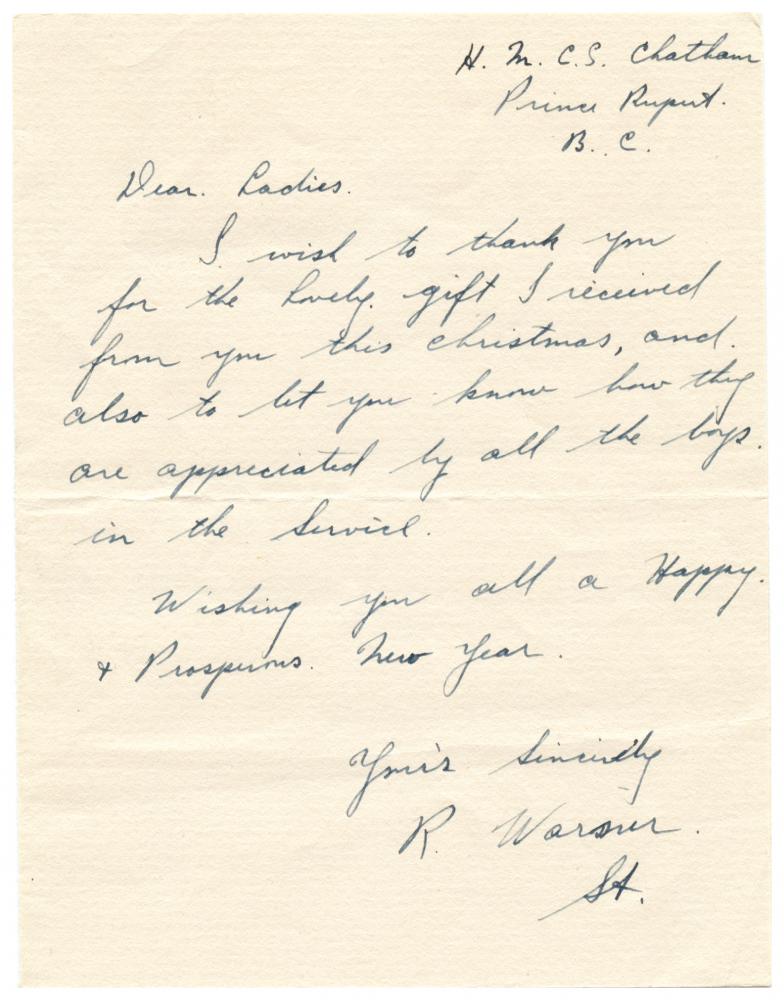 H. M. C. S. Chatham
Prince Rupert.
B. C.
Dear. Ladies.
I wish to thank you
for the Lovely. gift I received
from you this Christmas, and.
also to let you know how they
are appreciated by all the boys.
in the Service.
Wishing you all a Happy.
+ Prosperous. New Year.
Your's Sincerely
R.